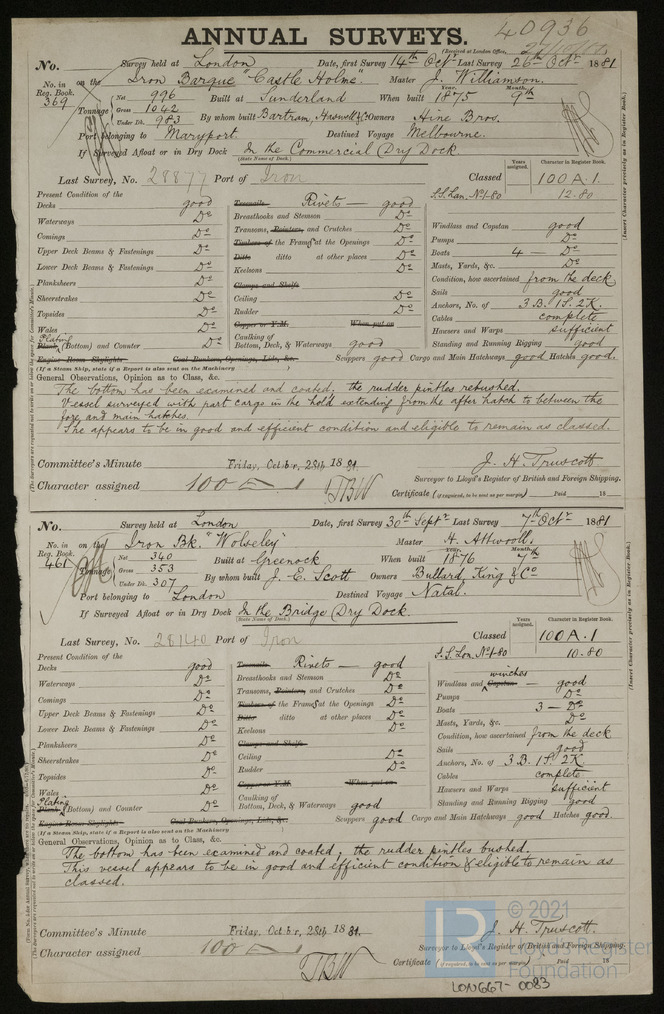 ANNUAL SURVEYS.
40936
(Received at London Office,
No. Survey held at London Date, first Survey 14th Octr Last Survey 26th Octr 1881
No. in Reg. Book. 369 on the Iron Barque "Castle Holme" Master J. Williamson.
Tonnage Net 996 Gross 1042 Under Dk. 983 Built at Sunderland When built Year. 1875 Month. 9th
By whom built Bartram, Haswell & Co Owners Hine Bros.
Port belonging to Maryport Destined Voyage Melbourne.
If Surveyed Afloat or in Dry Dock In the Commercial Dry Dock
(State Name of Dock.)
Years assigned. Character in Register Book.
Last Survey, No. 28877 Port of Iron Classed 100 A.1
S.S. Lon. No1-80 12.80
Present Condition of the
Decks good Treenails Rivets — good
Waterways Do Breasthooks and Stemson Do Windlass and Capstan good
Comings Do Transoms, Pointers, and Crutches Do Pumps Do
Upper Deck Beams & Fastenings Do Timbers of the Frames at the Openings Do Boats 4 — Do
Lower Deck Beams & Fastenings Do Ditto ditto at other places Do Masts, Yards, &c. Do
Plansheers Do Keelsons Do Condition, how ascertained from the deck
Sheerstrakes Do Clamps and Shelfs Sails good
Topsides Do Ceiling Do Anchors, No. of 3 B. 1 S. 2 K.
Wales Do Rudder Do Cables complete
Copper or Y.M. When put on Hawsers and Warps sufficient
Plating Plank (Bottom) and Counter Do Caulking of Bottom, Deck, & Waterways good Standing and Running Rigging good
Engine Room Skylights Coal Bunkers, Openings, Lids, &c. Scuppers good Cargo and Main Hatchways good Hatches good.
(If a Steam Ship, state if a Report is also sent on the Machinery
General Observations, Opinion as to Class, &c.
The bottom has been examined and coated, the rudder pintles rebushed.
Vessel surveyed with part cargo in the hold extending from the after hatch to between the
fore and main hatches.
She appears to be in good and efficient condition and eligible to remain as classed.
Committee's Minute Friday, October, 28th, 1881. J. H. Truscott
Character assigned 100 A 1 Surveyor to Lloyd's Register of British and Foreign Shipping.
Certificate (if required, to be sent as per margin) Paid 18
(Insert Character precisely as in Register Book.)
No. Survey held at London Date, first Survey 30th Septr Last Survey 7th Octr 1881
No. in Reg. Book. 461 on the Iron Bk. "Wolseley" Master H. Attwooll.
Tonnage Net 340 Gross 353 Under Dk. 307 Built at Greenock When built Year. 1876 Month. 7th
By whom built J. E. Scott Owners Bullard, King & Co
Port belonging to London Destined Voyage Natal.
If Surveyed Afloat or in Dry Dock In the Bridge Dry Dock.
(State Name of Dock.)
Years assigned. Character in Register Book.
Last Survey, No. 28140 Port of Iron Classed 100 A.1
S.S. Lon. No1-80 10.80
Present Condition of the
Decks good Treenails Rivets — good winches
Waterways Do Breasthooks and Stemson Do Windlass and Capstan — good
Comings Do Transoms, Pointers, and Crutches Do Pumps Do
Upper Deck Beams & Fastenings Do Timbers of the Frames at the Openings Do Boats 3 — Do
Lower Deck Beams & Fastenings Do Ditto ditto at other places Do Masts, Yards, &c. Do
Plansheers Do Keelsons Do Condition, how ascertained from the deck
Sheerstrakes Do Clamps and Shelfs Sails good
Topsides Do Ceiling Do Anchors, No. of 3 B. 1 S. 2 K
Wales Do Rudder Do Cables complete
Copper or Y.M. When put on Hawsers and Warps sufficient
Plating Plank (Bottom) and Counter Do Caulking of Bottom, Deck, & Waterways good Standing and Running Rigging good
Engine Room Skylights Coal Bunkers, Openings, Lids, &c. Scuppers good Cargo and Main Hatchways good Hatches good.
(If a Steam Ship, state if a Report is also sent on the Machinery
General Observations, Opinion as to Class, &c.
The bottom has been examined and coated; the rudder pintles bushed.
This vessel appears to be in good and efficient condition & eligible to remain as
classed.
Committee's Minute Friday, October, 28th, 1881. J. H. Truscott.
Character assigned 100 A 1 Surveyor to Lloyd's Register of British and Foreign Shipping.
Certificate (if required, to be sent as per margin) Paid 18
(Insert Character precisely as in Register Book.)
© 2021
LR Lloyd's Register
Foundation
LON667-0083